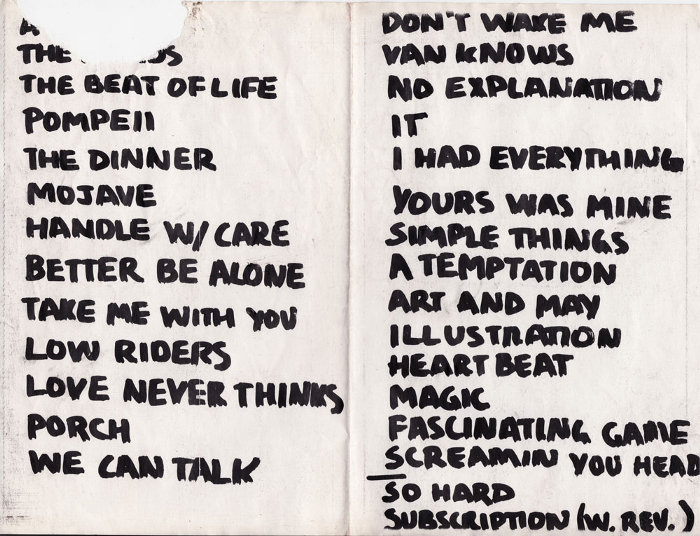 A
THE
THE BEAT OF LIFE
POMPEII
THE DINNER
MOJAVE
HANDLE W/ CARE
BETTER BE ALONE
TAKE ME WITH YOU
LOW RIDERS
LOVE NEVER THINKS
PORCH
WE CAN TALK
DON'T WAKE ME
VAN KNOWS
NO EXPLANATION
IT
I HAD EVERYTHING
YOURS WAS MINE
SIMPLE THINGS
A TEMPTATION
ART AND MAY
ILLUSTRATION
HEART BEAT
MAGIC
FASCINATING GAME
SCREAMIN YOU HEAD
SO HARD
SUBSCRIPTION (W. REV.)